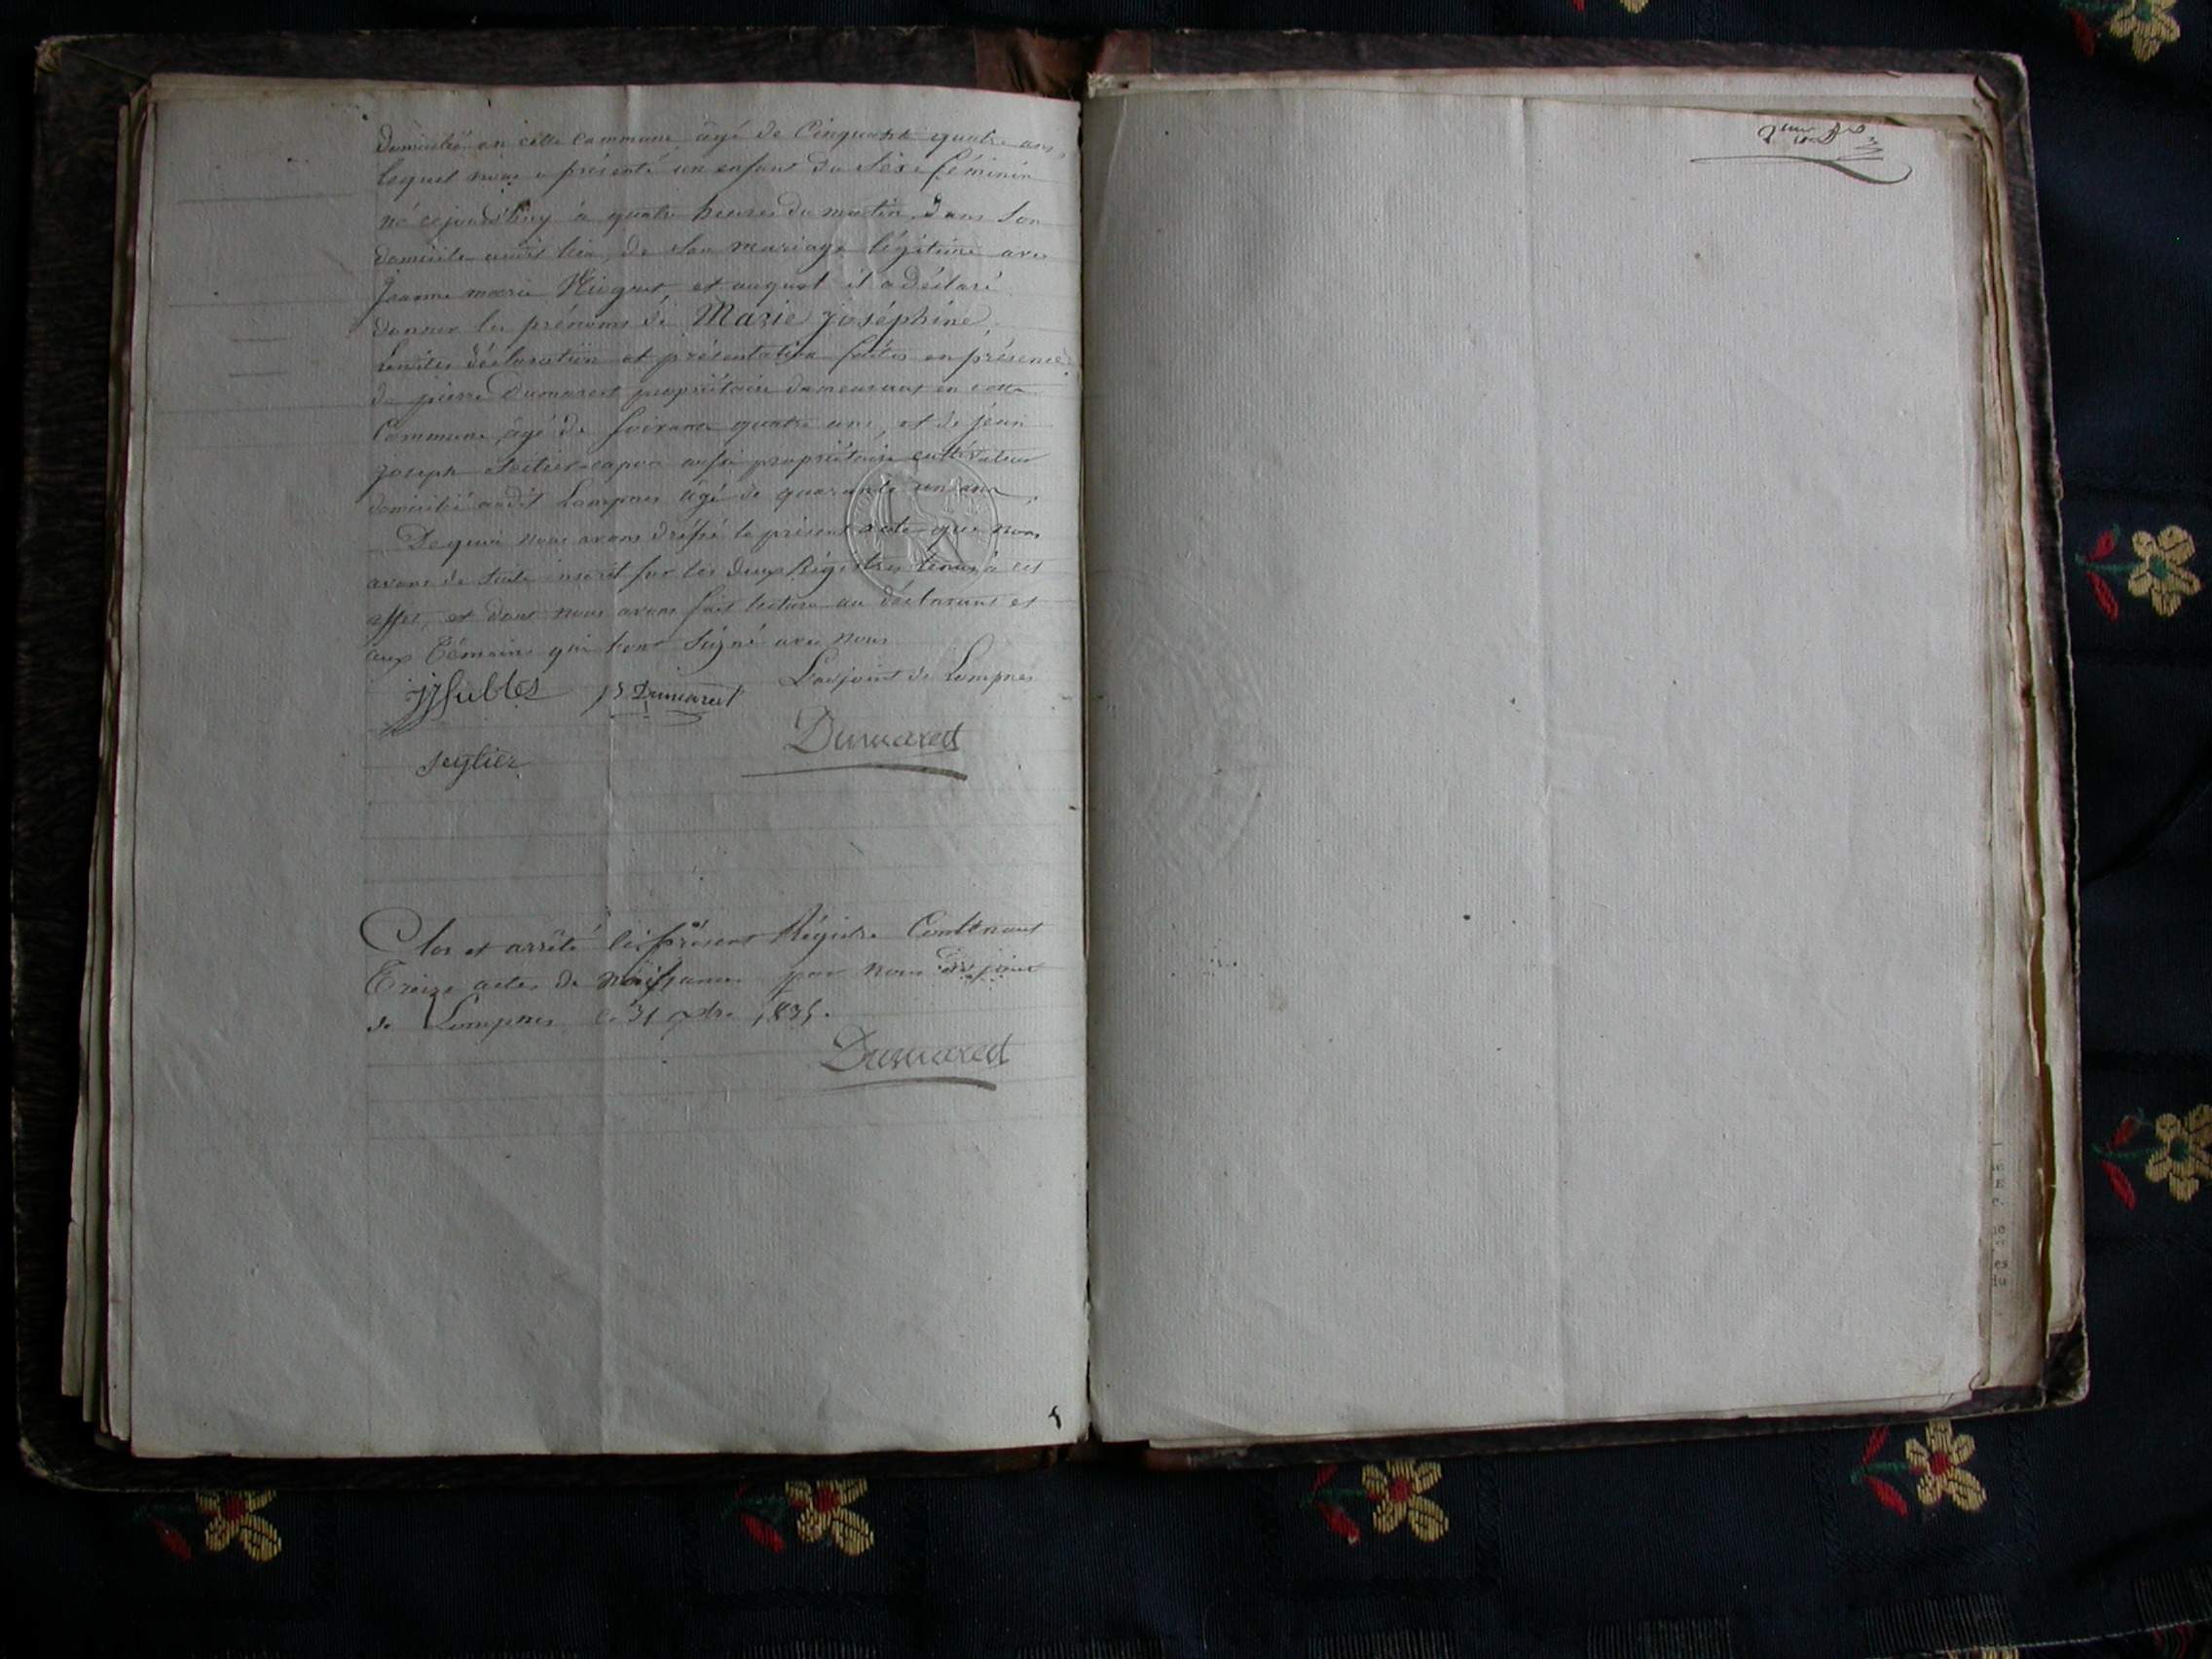 domicilié en cette commune âgé de Cinquante quatre ans,
lequel nous a présenté un enfant du Séxe féminin
né cejourd'huy à quatre heures du matin, dans Son
domicile audit lieu, de Son mariage légitime avec
Jeanne marie et auquel il a déclaré
donner les prénoms de Marie joséphine.
Lesdites déclaration et présentation faites en présence
de pierre Dumarest propriétaire demeurant en cette
Commune, âgé de Soixante quatre ans, et de jean
joseph aussi propriétaire cultivateur
domicilié audit Lompnes âgé de quarante un ans.
De quoi nous avons dréssé le présent acte que nous
avons de Suite inscrit sur les deux Régistres tenus à cet
effet, et dont nous avons fait lecture au déclarant et
aux Témoins qui l'ont Signé avec nous
L'adjoint de Lompnes
jjSubles P. Dumarest
Dumarest
Seytier
Clos et arrêté le présent Régistre Contenant
Treize actes de naissances par nous adjoint
de Lompnes le 31 Xbre 1835.
Dumarest